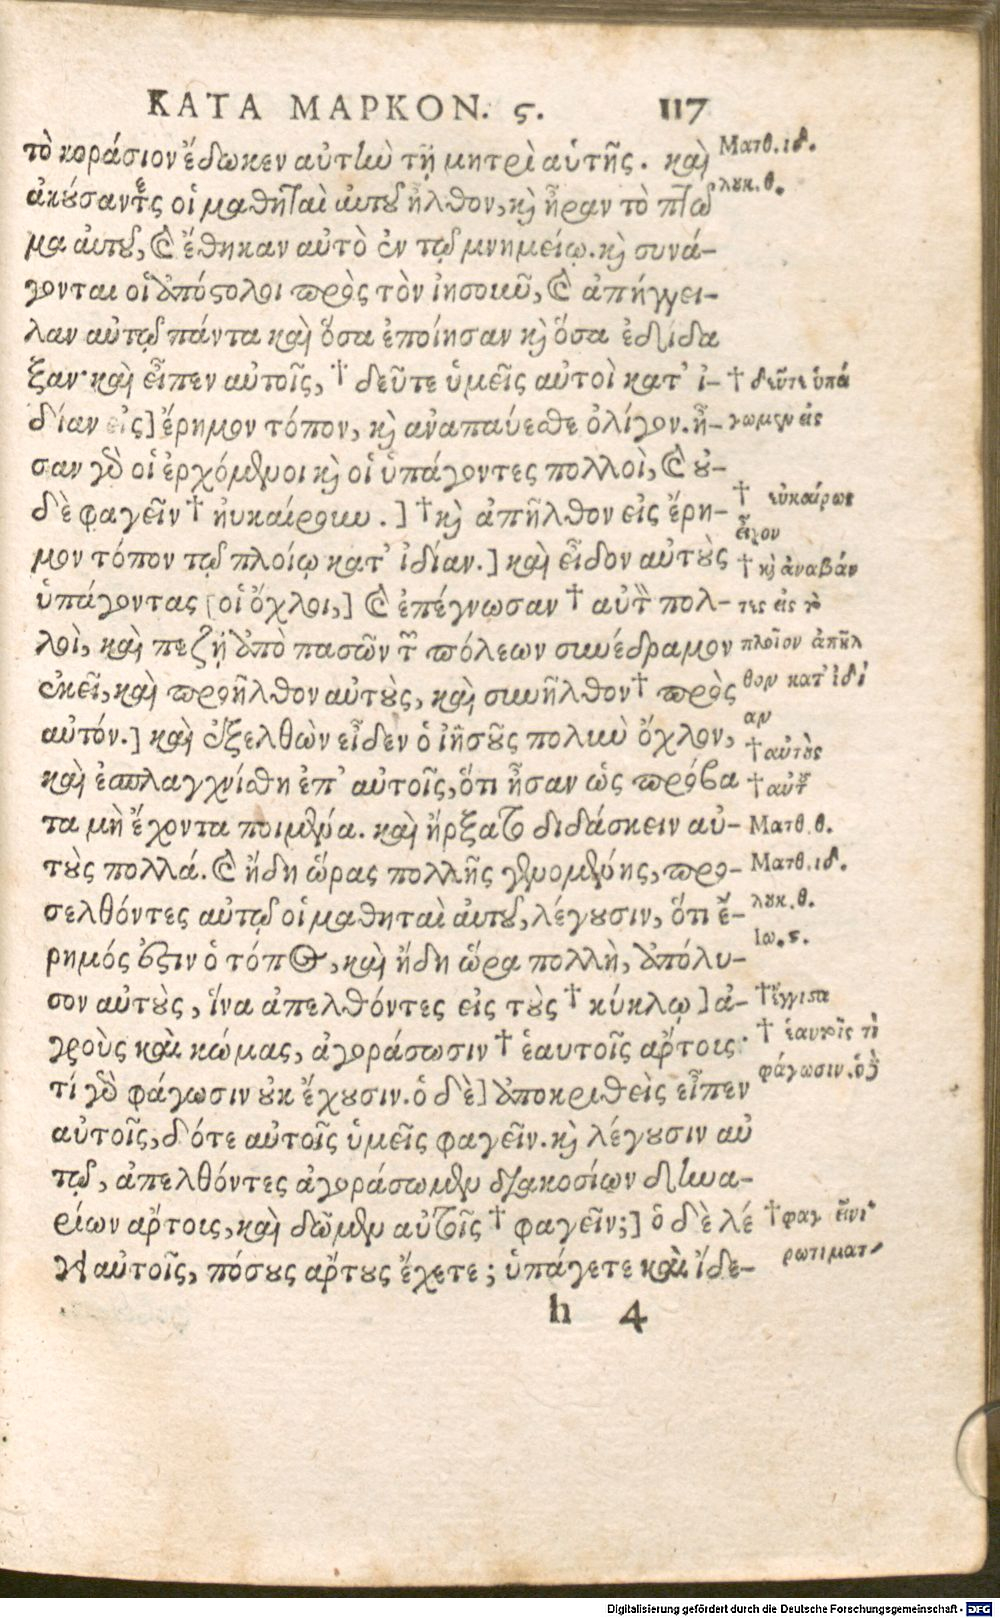 ΚΑΤΑ ΜΑΡΚΟΝ. ϛ. 117
τὸ κοράσιον ἔδωκεν αὐτὴν τῇ μητρὶ αὑτῆς. καὶ
ἀκούσαντες οἱ μαθηταὶ αὐτοῦ ἦλθον, κὶ ἦραν τὸ πτῶ
μα αὐτοῦ, καὶ ἔθηκαν αὐτὸ ἐν τῷ μνημείῳ. κὶ συνά-
γονται οἱ ἀπόστολοι πρὸς τὸν ἰησοῦν, καὶ ἀπήγγει-
λαν αὐτῷ πάντα καὶ ὅσα ἐποίησαν κὶ ὅσα ἐδίδα
ξαν· καὶ εἶπεν αὐτοῖς, † δεῦτε ὑμεῖς αὐτοὶ κατ' ἰ-
δίαν εἰς] ἔρημον τόπον, κὶ ἀναπαύεσθε ὀλίγον. ἦ-
σαν γὰρ οἱ ἐρχόμενοι κὶ οἱ ὑπάγοντες πολλοὶ, καὶ οὐ-
δὲ φαγεῖν † ηὐκαίρουν.] † κὶ ἀπῆλθον εἰς ἔρη-
μον τόπον τῷ πλοίῳ κατ' ἰδίαν.] καὶ εἶδον αὐτοὺς
ὑπάγοντας [οἱ ὄχλοι,] καὶ ἐπέγνωσαν † αὐτὸν πολ-
λοὶ, καὶ πεζῇ ἀπὸ πασῶν τῶν πόλεων συνέδραμον
ἐκεῖ, καὶ προῆλθον αὐτοὺς, καὶ συνῆλθον † πρὸς
αὐτόν.] καὶ ἐξελθὼν εἶδεν ὁ ἰησοῦς πολὺν ὄχλον,
καὶ ἐσπλαγχνίσθη ἐπ' αὐτοῖς, ὅτι ἦσαν ὡς πρόβα
τα μὴ ἔχοντα ποιμένα. καὶ ἤρξατο διδάσκειν αὐ-
τοὺς πολλά. καὶ ἤδη ὥρας πολλῆς γενομένης, προ-
σελθόντες αὐτῷ οἱ μαθηταὶ αὐτοῦ, λέγουσιν, ὅτι ἔ-
ρημός ἐστιν ὁ τόπος, καὶ ἤδη ὥρα πολλὴ, ἀπόλυ-
σον αὐτοὺς, ἵνα ἀπελθόντες εἰς τοὺς † κύκλῳ] ἀ-
γροὺς καὶ κώμας, ἀγοράσωσιν † ἑαυτοῖς ἄρτους·
τί γὰρ φάγωσιν οὐκ ἔχουσιν. ὁ δὲ] ἀποκριθεὶς εἶπεν
αὐτοῖς, δότε αὐτοῖς ὑμεῖς φαγεῖν. κὶ λέγουσιν αὐ
τῷ, ἀπελθόντες ἀγοράσωμεν διακοσίων δηνα-
ρίων ἄρτους, καὶ δῶμεν αὐτοῖς † φαγεῖν;] ὁ δὲ λέ
γει αὐτοῖς, πόσους ἄρτους ἔχετε; ὑπάγετε καὶ ἴδε-
h 4
Ματθ. ιδ.
λουκ. θ.
† δεῦτε ὑπά
γωμεν εἰς
† εὐκαίρως
εἶχον
† κὶ ἀναβάν
τες εἰς τὸ
πλοῖον ἀπῆλ
θον κατ' ἰδί
αν
† αὐτοὺς
† αὐτῶν
Ματθ. θ.
Ματθ. ιδ.
λουκ. θ.
Ιω. ς.
† ἔγγιστα
† ἑαυτοῖς τὶ
φάγωσιν. ὁ δὲ
† φαγ
Digitalisierung gefördert durch die Deutsche Forschungsgemeinschaft - DFG